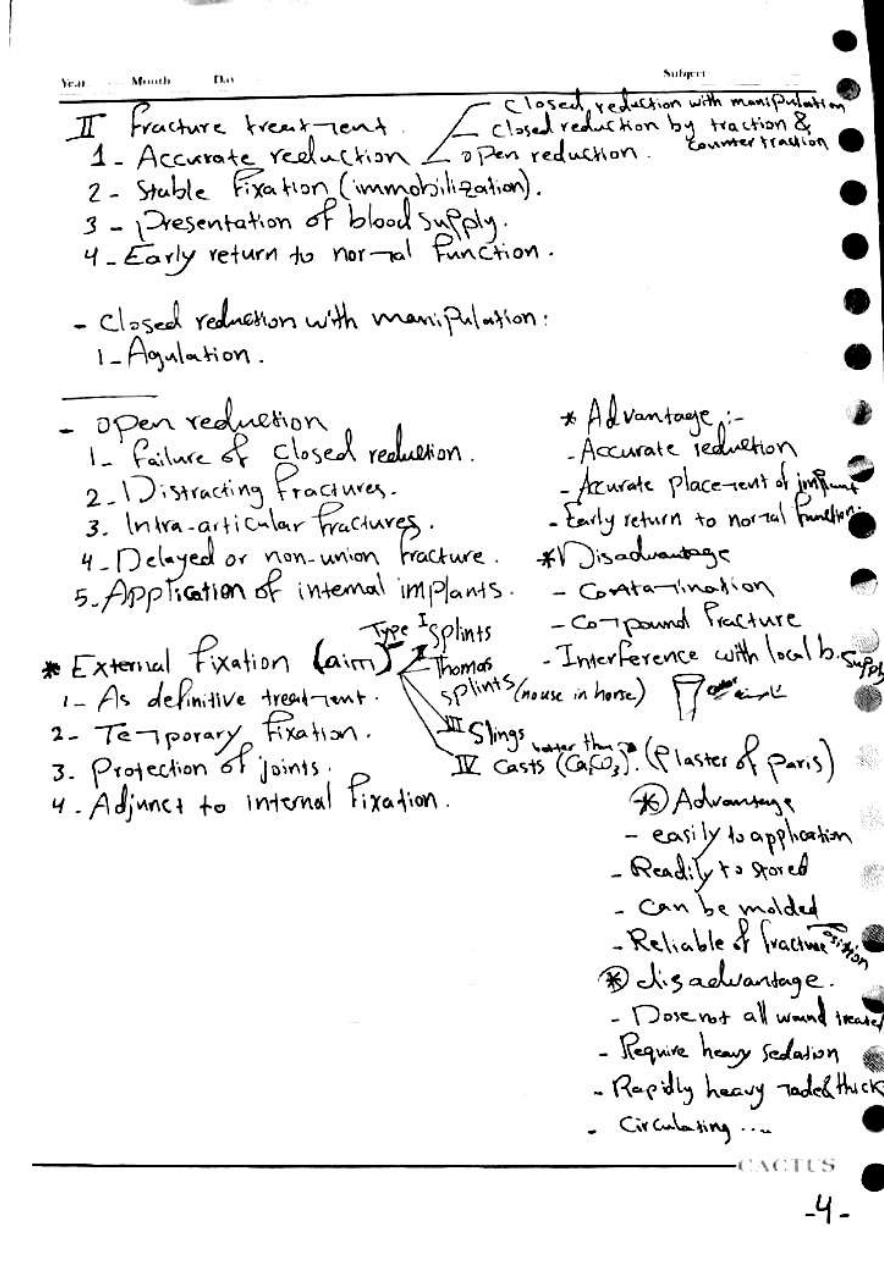 Year Month Day Subject
II Fracture treatment.
Closed reduction with manipulation
Closed reduction by traction & counter traction
open reduction.
1- Accurate reeluction
2- Stable fixation (immobilization).
3- presentation of blood supply.
4- Early return to normal function.
- Closed reduction with manipulation:
1- Agulation.
- open reduction
1- Failure of closed reduction.
2- Distracting fractures.
3. Intra-articular fractures.
4- Delayed or non-union fracture.
5- Application of internal implants.
* Advantage :-
- Accurate reduction
- Acurate placement of implant
- Early return to normal function.
* Disadvantage
- Contamination
- Compound fracture
- Interference with local b. supply
* External fixation (aim)
1- As definitive treatment.
2- Temporary fixation.
3. Protection of joints.
4. Adjunct to internal fixation.
Type I Splints
II Thomas
splints (nouse in horse)
III Slings
better than
IV Casts (CaCO3). (Plaster of paris)
* Advantage
- easily to application
- Readily to stored
- Can be molded
- Reliable of fracture Position
* disadvantage.
- Dose not all wound treated
- Require heavy sedation
- Rapidly heavy made & thick
- Circulating ....
CACTUS
-4-